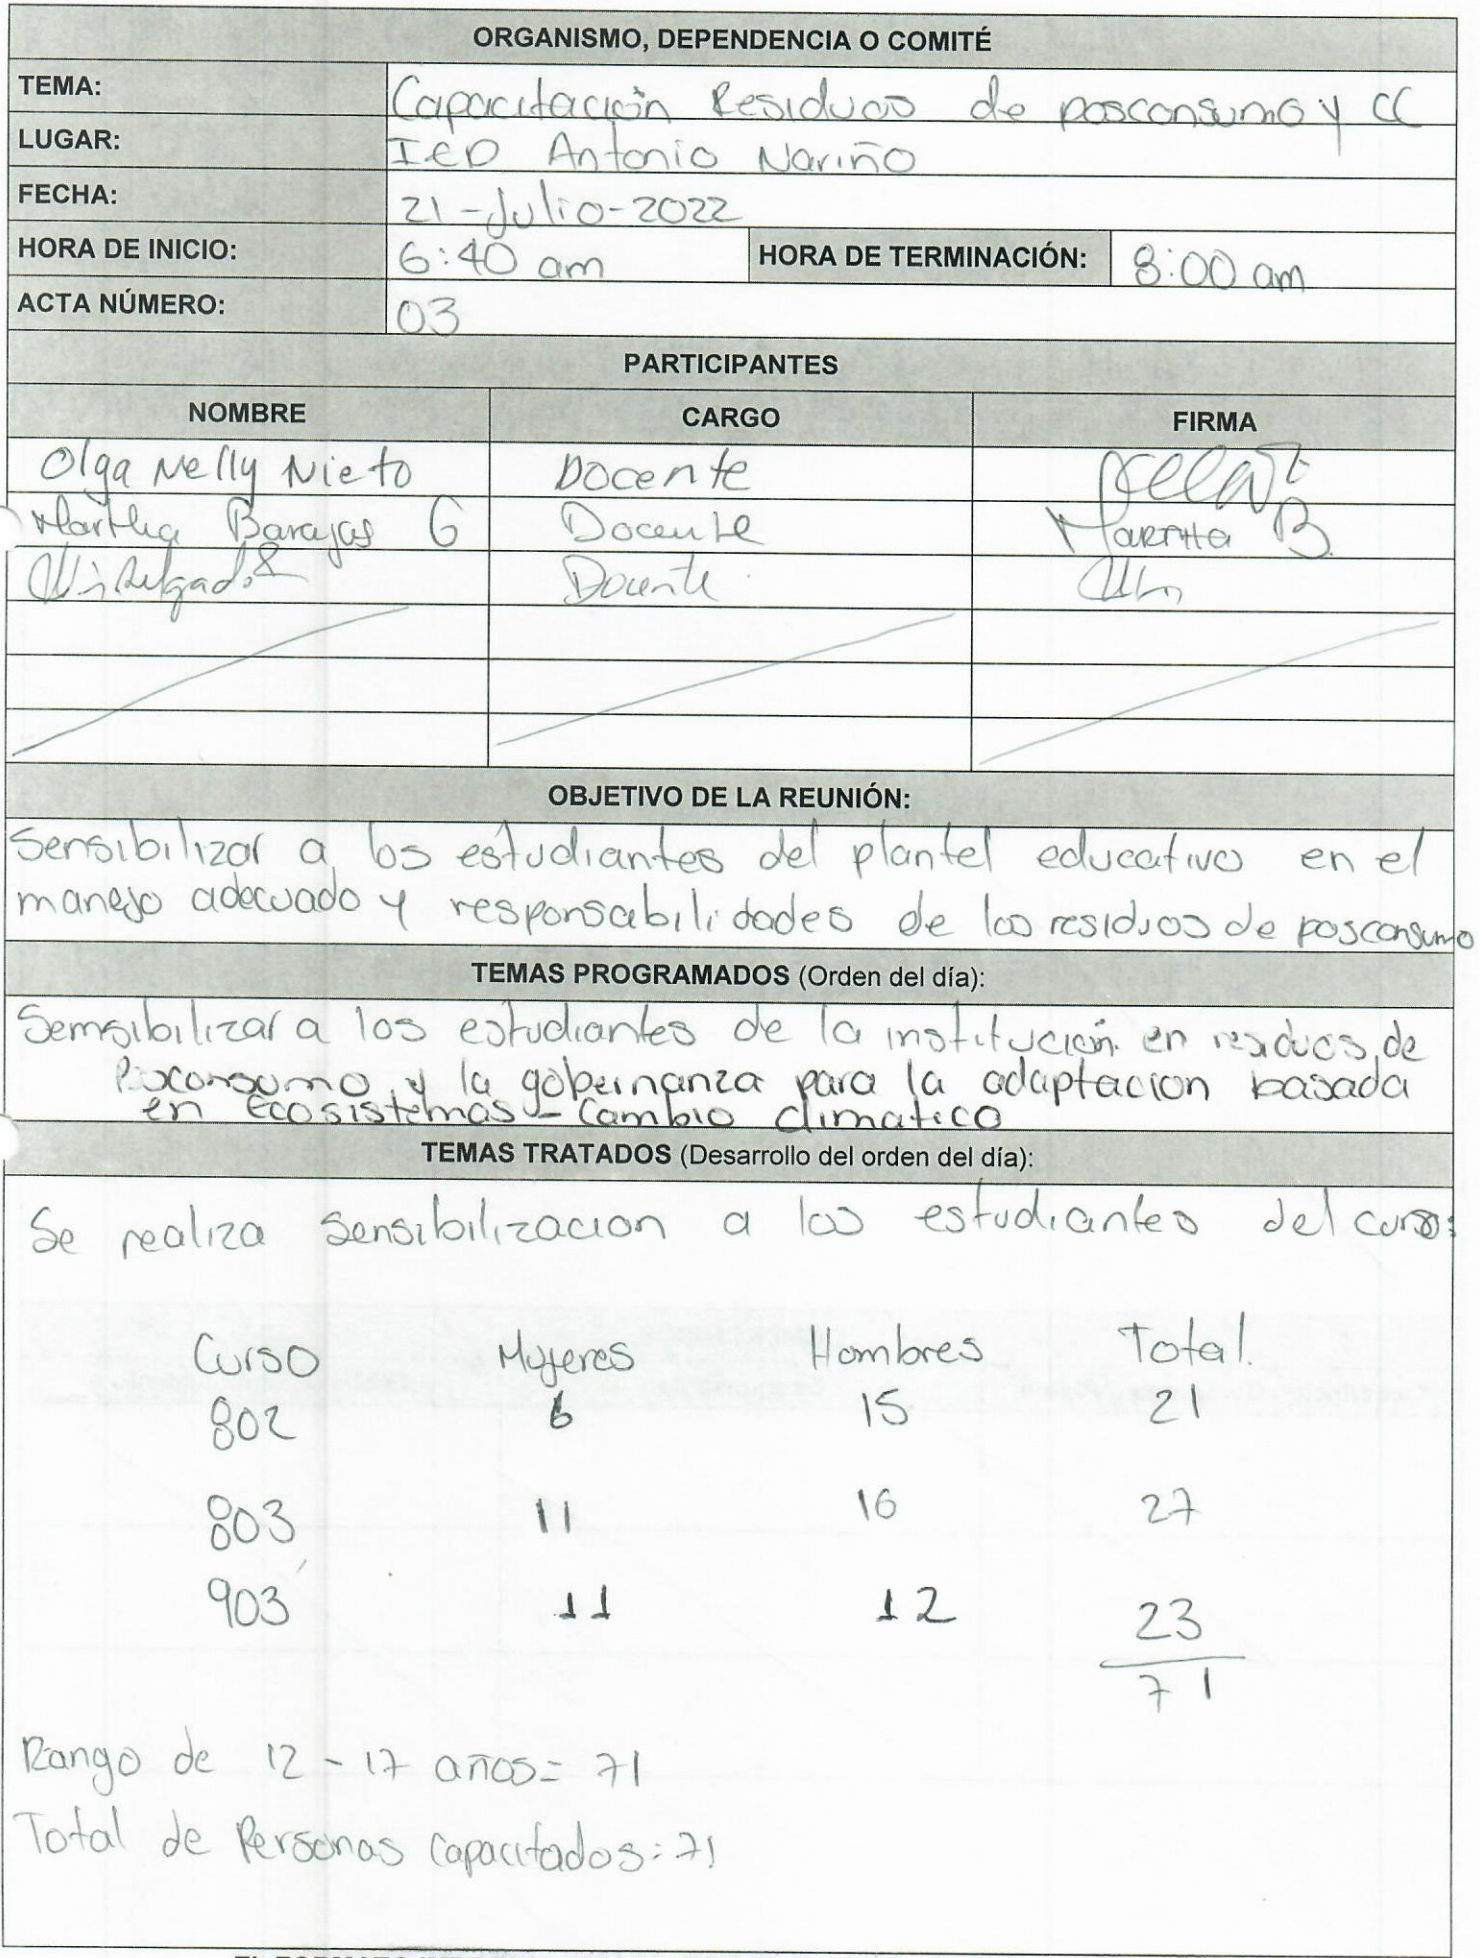 ORGANISMO, DEPENDENCIA O COMITÉ
TEMA: Capacitación Residuos de posconsumo y CC
LUGAR: IED Antonio Nariño
FECHA: 21-Julio-2022
HORA DE INICIO: 6:40 am HORA DE TERMINACIÓN: 8:00 am
ACTA NÚMERO: 03
PARTICIPANTES
NOMBRE CARGO FIRMA
Olga Nelly Nieto Docente
Martha Barajas G Docente Martha B.
Delgado Docente
OBJETIVO DE LA REUNIÓN:
Sensibilizar a los estudiantes del plantel educativo en el
manejo adecuado y responsabilidades de los residuos de posconsumo
TEMAS PROGRAMADOS (Orden del día):
Sensibilizar a los estudiantes de la institución en residuos de
Posconsumo y la gobernanza para la adaptacion basada
en Ecosistemas - Cambio climatico
TEMAS TRATADOS (Desarrollo del orden del día):
Se realiza sensibilizacion a los estudiantes del curso:
Curso Mujeres Hombres Total.
802 6 15 21
803 11 16 27
903 11 12 23
71
Rango de 12 - 17 años = 71
Total de Personas Capacitados: 71